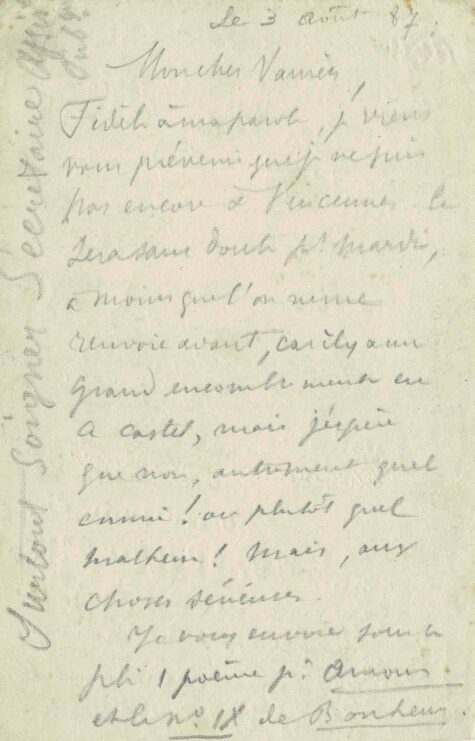 Le 3 août 87.
Mon cher Vanier,
Fidèle à ma parole, je viens
vous prévenir que je ne suis
pas encore à Vincennes. Ce
sera sans doute pr mardi,
à moins que l'on ne me
renvoie avant, car il y a un
grand encombrement en
ce castel, mais j'espère
que non, autrement quel
ennui! ou plutôt quel
malheur! Mais, aux
choses sérieuses.
Je vous envoie sous ce
pli 1 poème pr Amour
et le no. IX de Bonheur.
Surtout soigner Secrétaire